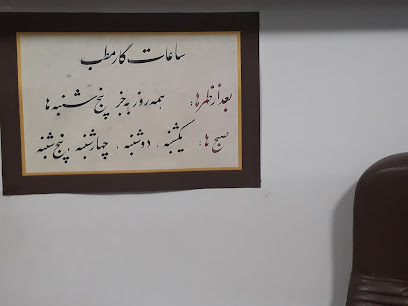 ساعات کار مطب
بعد از ظهرها: همه روز به جز پنج شنبه ها
صبح ها: یکشنبه ، دوشنبه ، چهارشنبه ، پنج شنبه